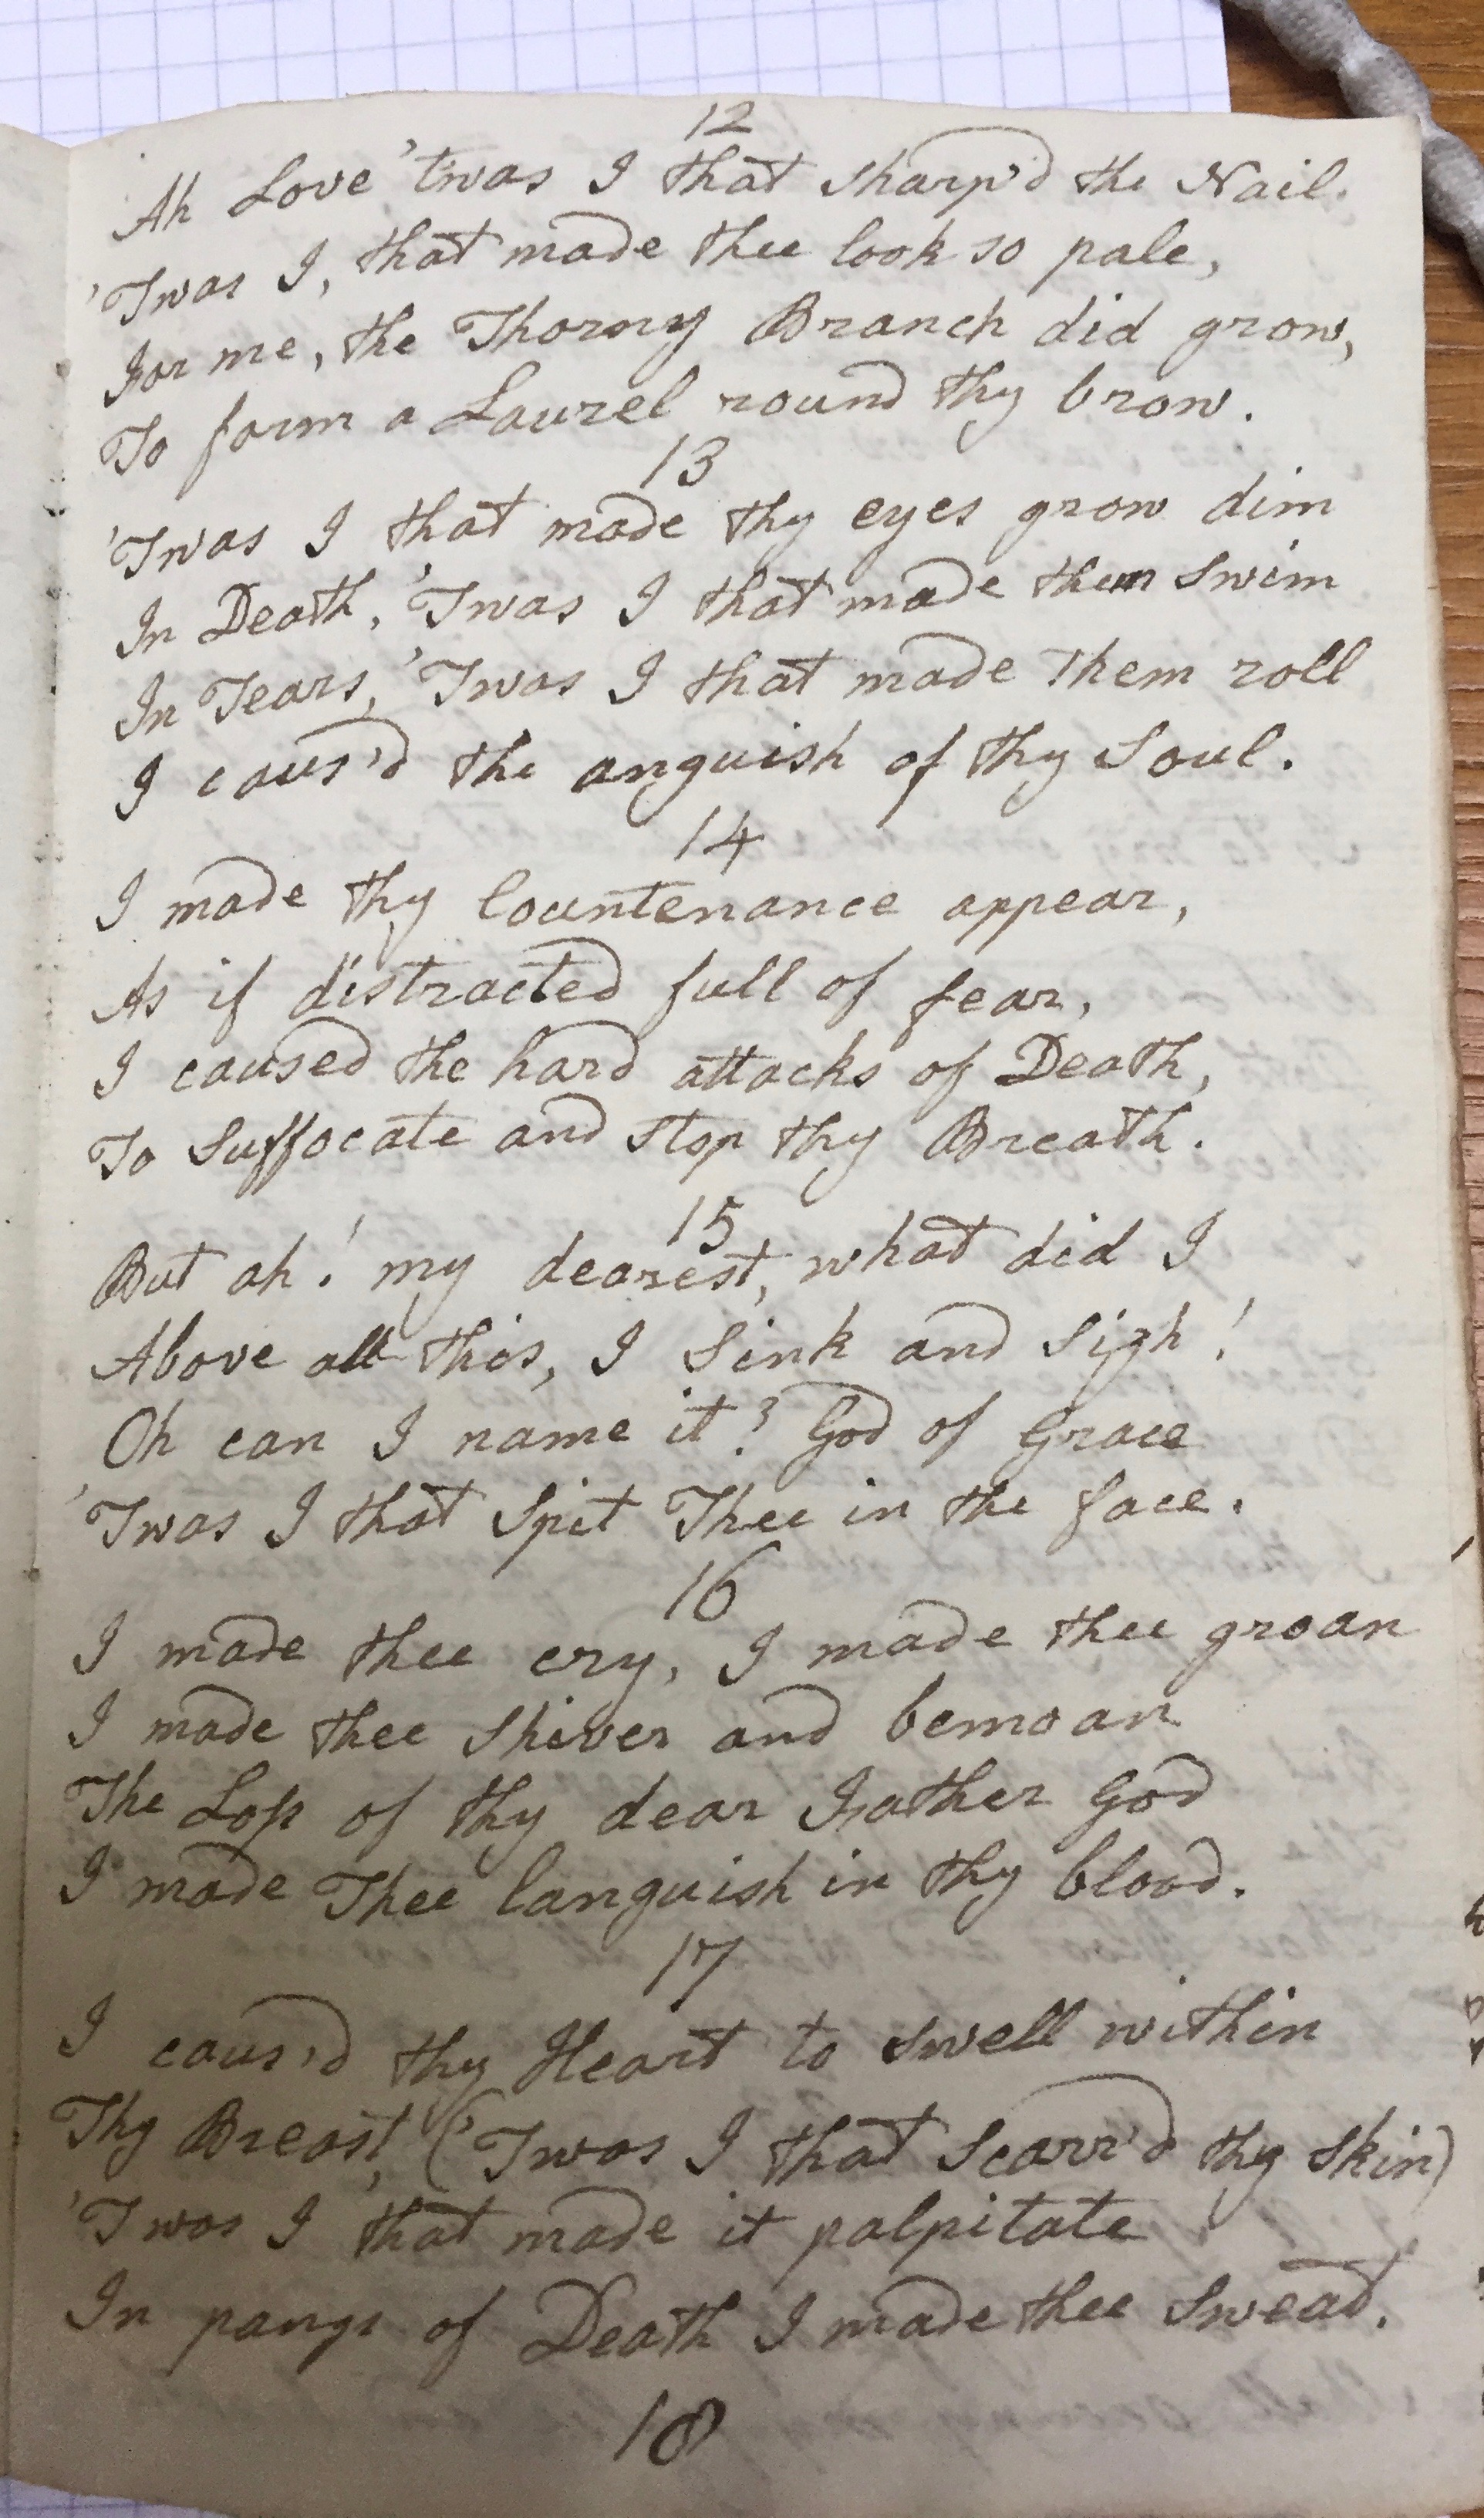 12
Ah Love 'twas I that sharp'd the Nail.
'Twas I, that made thee look so pale,
For me, the Thorny Branch did grow,
To form a Laurel round thy brow.
13
'Twas I that made thy eyes grow dim
In Death, 'Twas I that made them Swim
In Tears, 'Twas I that made Them roll
I caus'd the anguish of thy Soul.
14
I made thy Countenance appear,
As if distracted full of fear,
I caused the hard attacks of Death,
To Suffocate and stop thy Breath.
15
But ah! my dearest, what did I
Above all this, I Sink and Sigh!
Oh can I name it? God of Grace
'Twas I that Spit Thee in the face.
16
I made thee cry, I made thee groan
I made thee Shiver and bemoan
The Loſs of thy dear Father God
I made Thee languish in thy blood.
17
I caus'd thy Heart to swell within
Thy Breast, ('Twas I that Scarr'd thy Skin)
'Twas I that made it palpitate
In pangs of Death I made thee Swead.
18